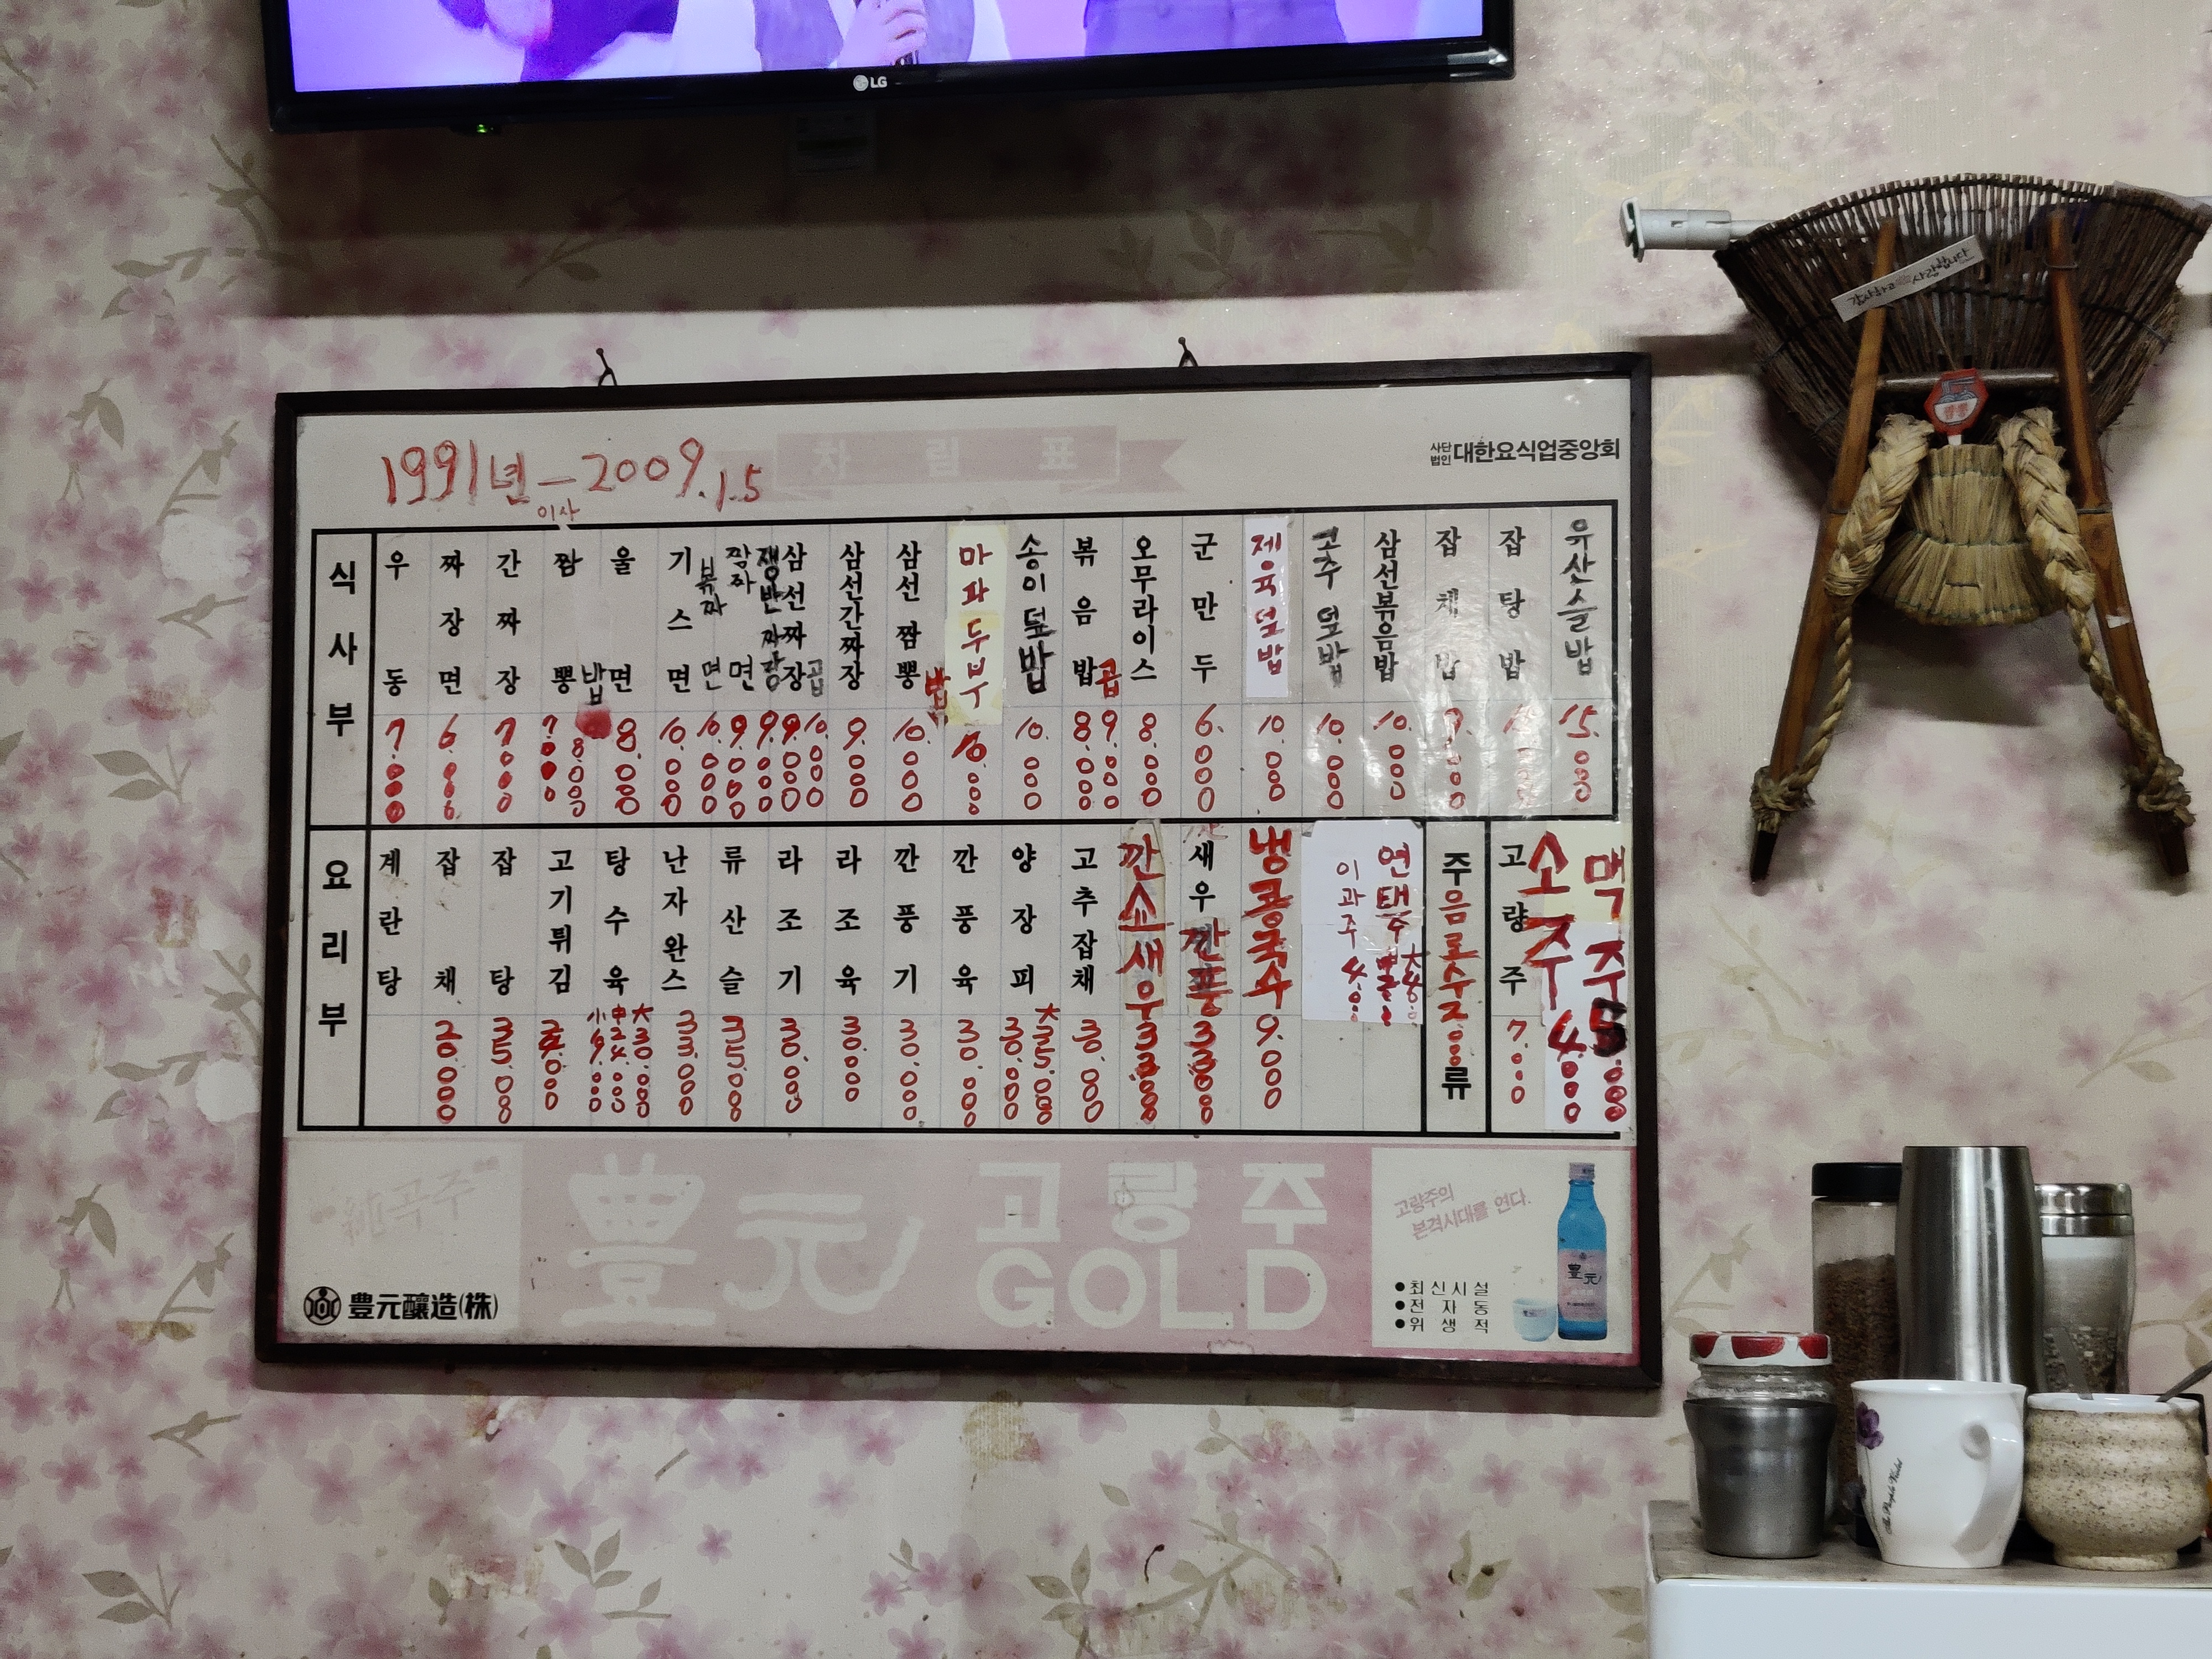 LG
감사하고 사랑합니다
짬뽕
1991년 — 2009.1.5
이사
차림표
사단법인 대한요식업중앙회
식사부
우동 7.000
짜장면 6.000
간짜장 7000
짬뽕 7000
밥 8.000
울면 8.000
기스면 10.000
볶짜면 10.000
짬짜면 9.000
쟁반짜장 9.000
삼선짜장 9.000
곱 10.000
삼선간짜장 9.000
삼선짬뽕 10.000
밥
마파두부 10.000
송이덮밥 10.000
볶음밥 8.000
곱 9.000
오무라이스 8.000
군만두 6.000
제육덮밥 10.000
고추덮밥 10.000
삼선볶음밥 10.000
잡채밥 9.000
잡탕밥
유산슬밥 15.000
요리부
계란탕
잡채 20.000
잡탕 35.000
고기튀김
탕수육 小 19.000 中 24.000 大 30.000
난자완스 33.000
류산슬 35.000
라조기 30.000
라조육 30.000
깐풍기 30.000
깐풍육 30.000
양장피 30.000 大 35.000
고추잡채 30.000
깐소새우 33000
새우깐풍 33000
냉콩국수 9.000
이과주 4.000
연태주
주류
음료수 2.000
고량주 7.000
소주 4000
맥주 5.000
純곡주
豊元 고량주
GOLD
豊元釀造(株)
고량주의
본격시대를 연다.
●최신시설
●전자동
●위생적
豊元
The Purple Violet